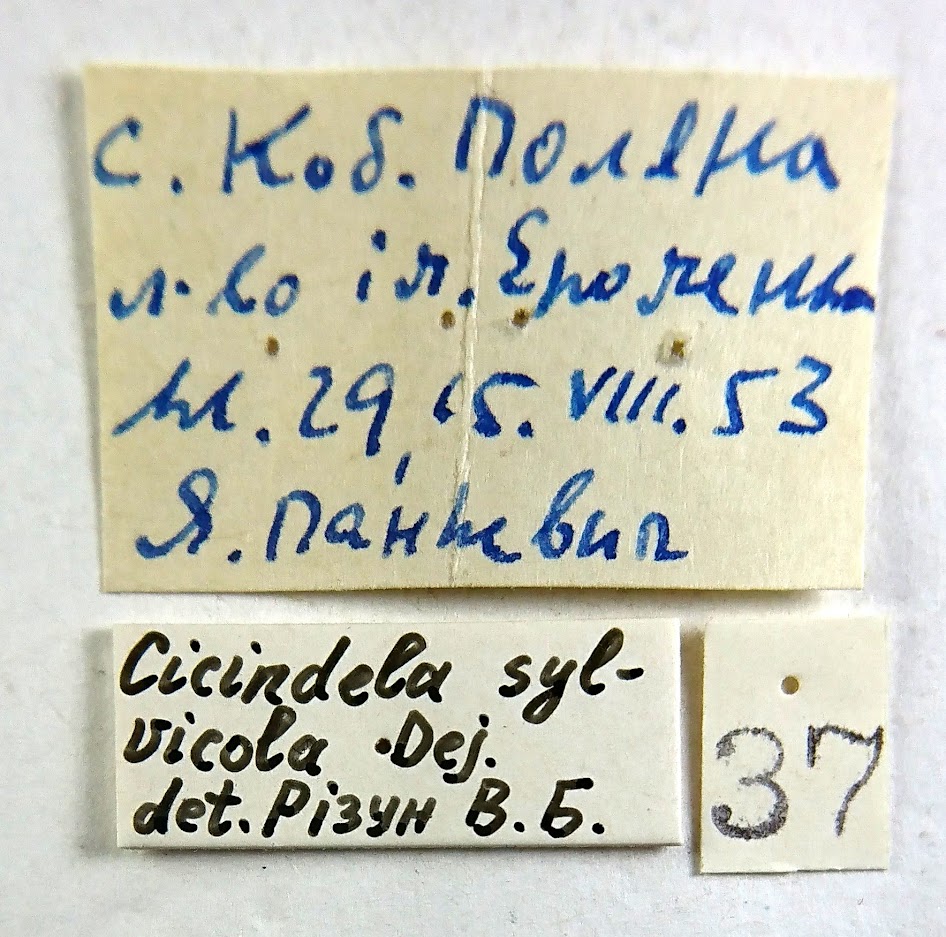 с. Коб. Поляна
л-во ім.
кв. 29, 15. VIII. 53
Я. Панкевич
Cicindela syl-
vicola Dej.
det. Різун В.Б.
37